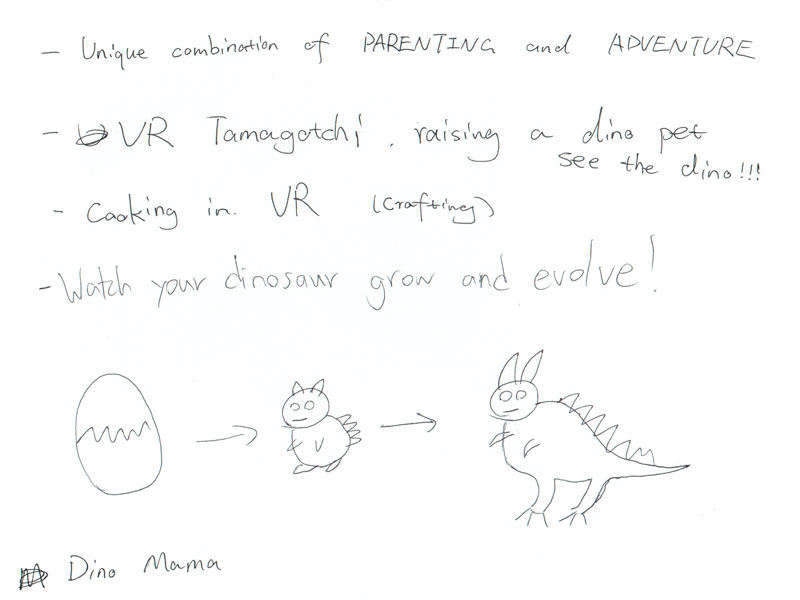 - Unique combination of PARENTING and ADVENTURE
- VR Tamagotchi, raising a dino pet
see the dino!!!
- Cooking in VR (Crafting)
- Watch your dinosaur grow and evolve!
Dino Mama